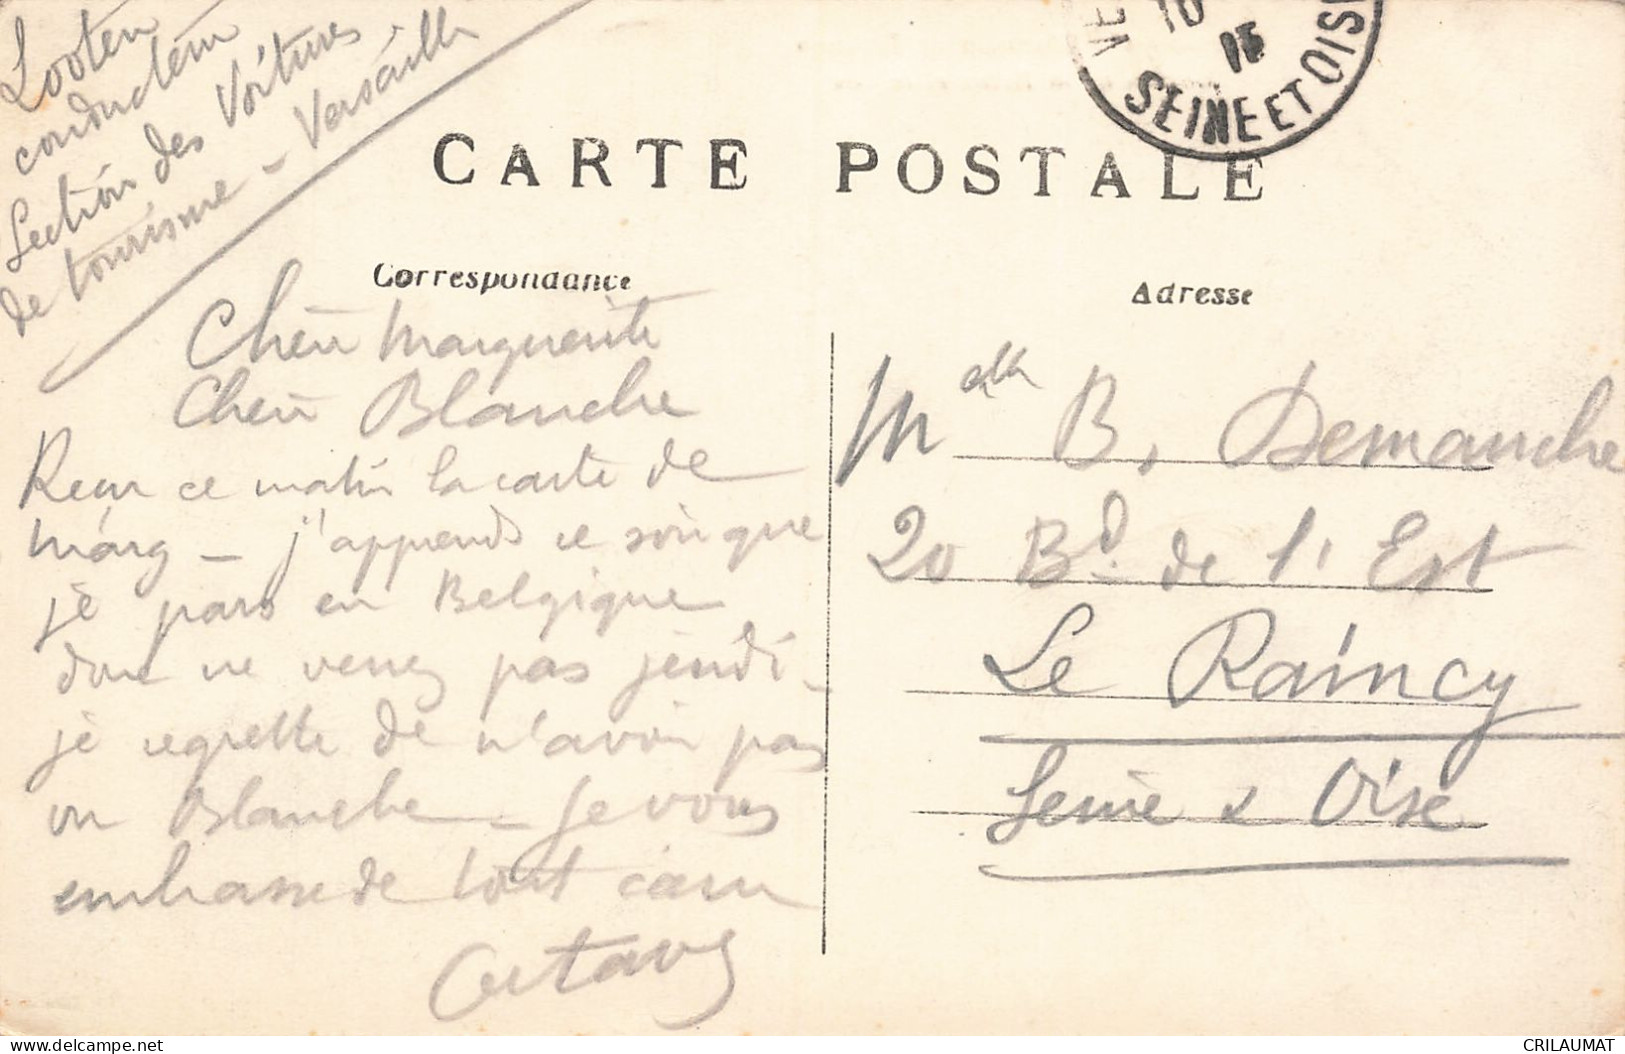 Looten
conducteur
Section des Voitures
de tourisme - Versailles
10
15
SEINE ET OISE
CARTE POSTALE
Correspondance
Adresse
Chère Marguerite
Chère Blanche
Reçu ce matin la carte de
Marg - j'apprends ce soir que
je pars en Belgique
donc ne venez pas jeudi -
je regrette de n'avoir pas
vu Blanche - Je vous
embrasse de tout cœur
Octave
Melle B. Demanche
20 Bd de l'Est
Le Raincy
Seine & Oise
delcampe.net
CRILAUMAT